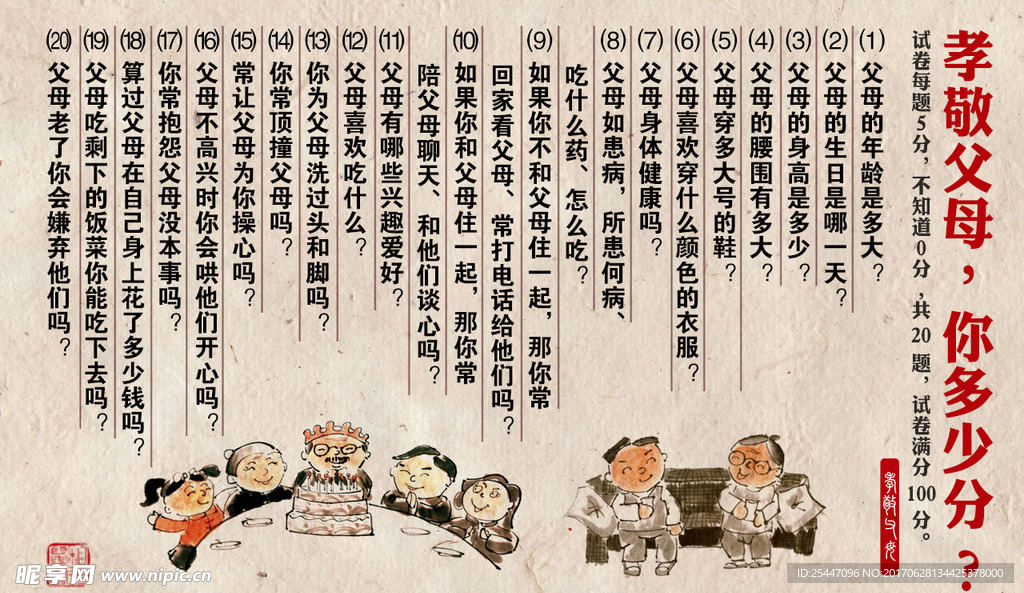 孝敬父母，你多少分？
试卷每题5分，不知道0分，共20题，试卷满分100分。
孝敬父母
(1)父母的年龄是多大？
(2)父母的生日是哪一天？
(3)父母的身高是多少？
(4)父母的腰围有多大？
(5)父母穿多大号的鞋？
(6)父母喜欢穿什么颜色的衣服？
(7)父母身体健康吗？
(8)父母如患病，所患何病、
吃什么药、怎么吃？
(9)如果你不和父母住一起，那你常
回家看父母、常打电话给他们吗？
(10)如果你和父母住一起，那你常
陪父母聊天、和他们谈心吗？
(11)父母有哪些兴趣爱好？
(12)父母喜欢吃什么？
(13)你为父母洗过头和脚吗？
(14)你常顶撞父母吗？
(15)常让父母为你操心吗？
(16)父母不高兴时你会哄他们开心吗？
(17)你常抱怨父母没本事吗？
(18)算过父母在自己身上花了多少钱吗？
(19)父母吃剩下的饭菜你能吃下去吗？
(20)父母老了你会嫌弃他们吗？
昵享网 www.nipic.cn
ID:25447096 NO:20170628134425378000